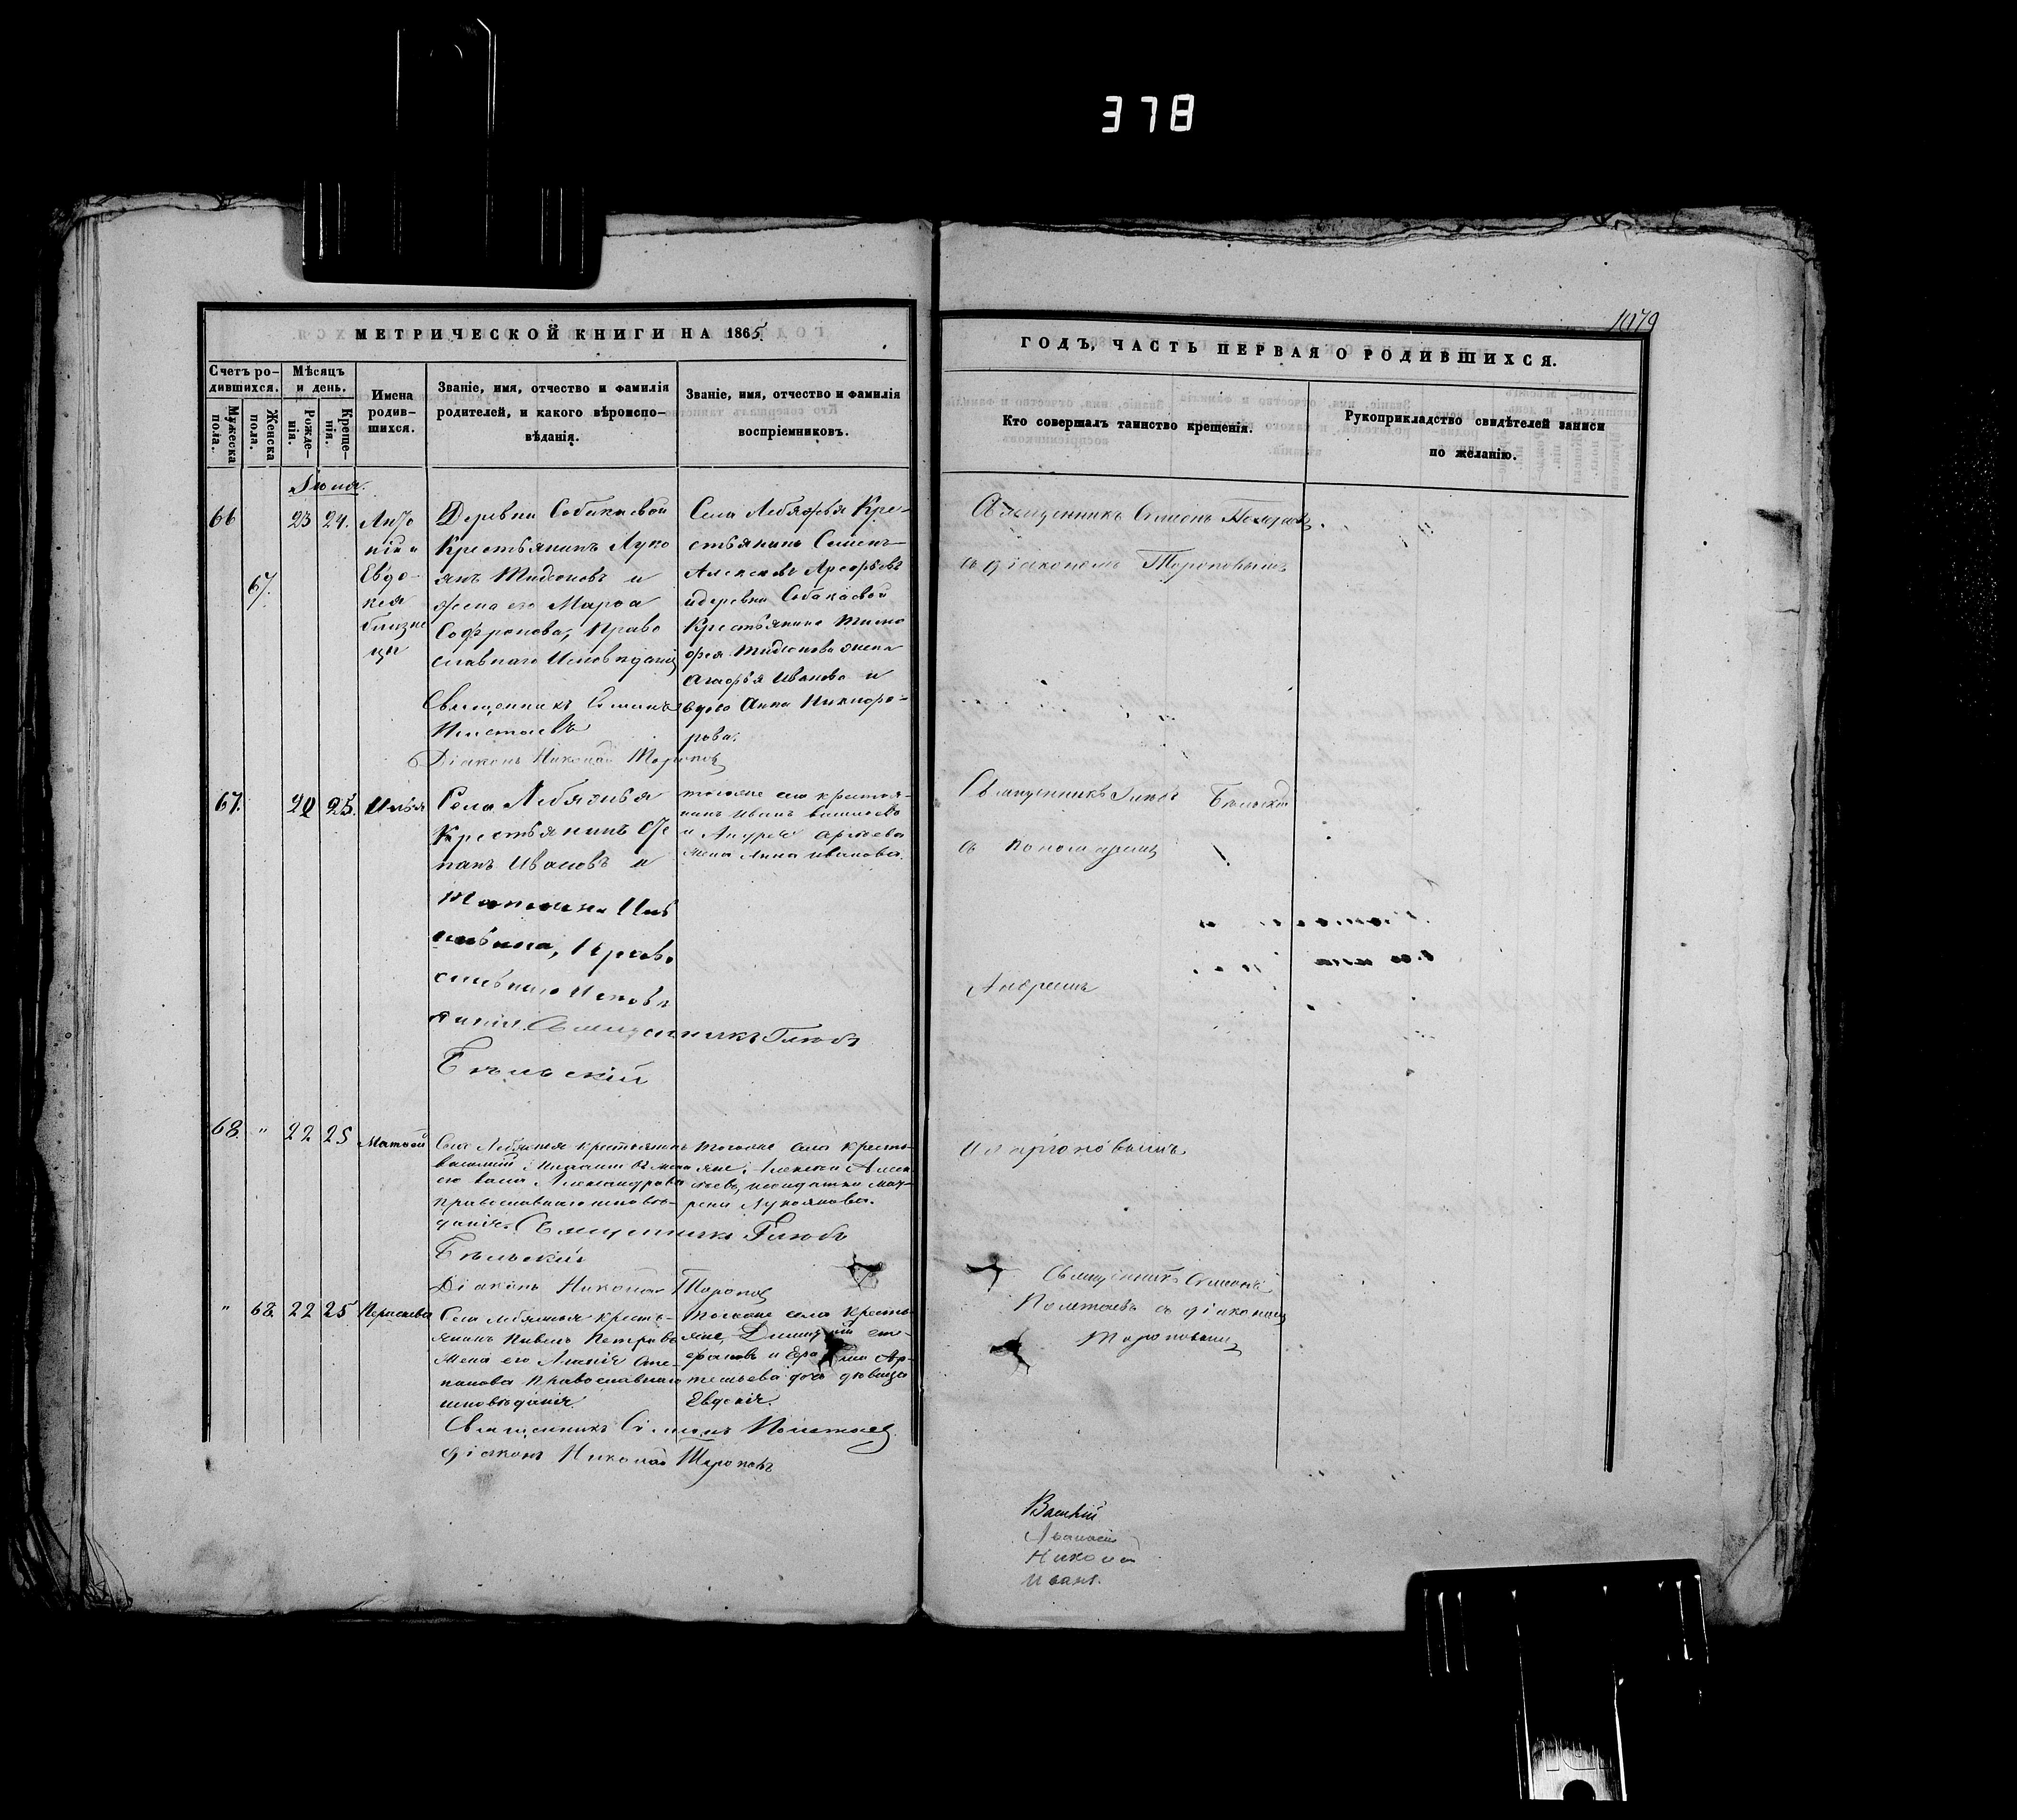 378
1079
МЕТРИЧЕСКОЙ КНИГИ НА 1865
Счетъ ро-
дившихся.
Мужеска
пола.
Женска
пола.
Мѣсяцъ
и день.
Рожде-
нія.
Креще-
нія.
Имена
родив-
шихся.
Званіе, имя, отчество и фамилія
родителей, и какого вѣроиспо-
вѣданія.
Званіе, имя, отчество и фамилія
воспріемниковъ.
ГОДЪ, ЧАСТЬ ПЕРВАЯ О РОДИВШИХСЯ.
Кто совершалъ таинство крещенія.
Рукоприкладство свидѣтелей записи
по желанію.
Іюня.
66
67.
23
24.
Евдо-
кея
близне
цы
Деревни Собакаевой
Крестьянинъ Луко
янъ и
жена его Марѳа
Софронова, Право
славнаго Исповѣданія
Священникъ Симонъ
Полетаевъ
Діаконъ Николай Тороповъ
Села Лебяжья Кре-
стьянинъ
Алексѣевъ
и деревни Собакаевой
Крестьянина Тимо
фея жена
Агафья Иванова и
вдова Анна Никифо-
рова.
Священникъ Симонъ
съ діакономъ Тороповымъ
67.
25.
Илья
Села Лебяжья
Крестьянинъ Сте
панъ Ивановъ и
Татьяна
Право
славнаго Исповѣ
данія. Священникъ Глѣбъ
Бѣльскій
тогоже села крестья-
нинъ Иванъ
и Андрея
жена Анна Иванова.
Священникъ Глѣбъ Бѣльскій
съ пономаремъ
Андреемъ
68.
"
22
25
Матвей
Села Лебяжья крестьянинъ
Василій
его Александрова
православнаго исповѣ-
данія. Священникъ Глѣбъ
Бѣльскій
Діаконъ Николай Тороповъ
тогоже села кресть-
яне: Алексѣй Алек-
сѣевъ, солдатка Мав-
рена Лукоянова.
Иларіоновымъ
"
68
22
25
Параскева
Села Лебяжья кресть-
янинъ Павелъ Петровъ
жена его Сте-
панова Православнаго
исповѣданія.
Священникъ Симонъ Полетаевъ
діаконъ Николай Тороповъ
тогоже села кресть-
яне, Димитрій Сте-
фановъ и
дочь дѣвица
Евдокія.
Священникъ Симонъ
Полетаевъ съ діакономъ
Тороповымъ
Василій
Аѳанасій
Николай
Иванъ.